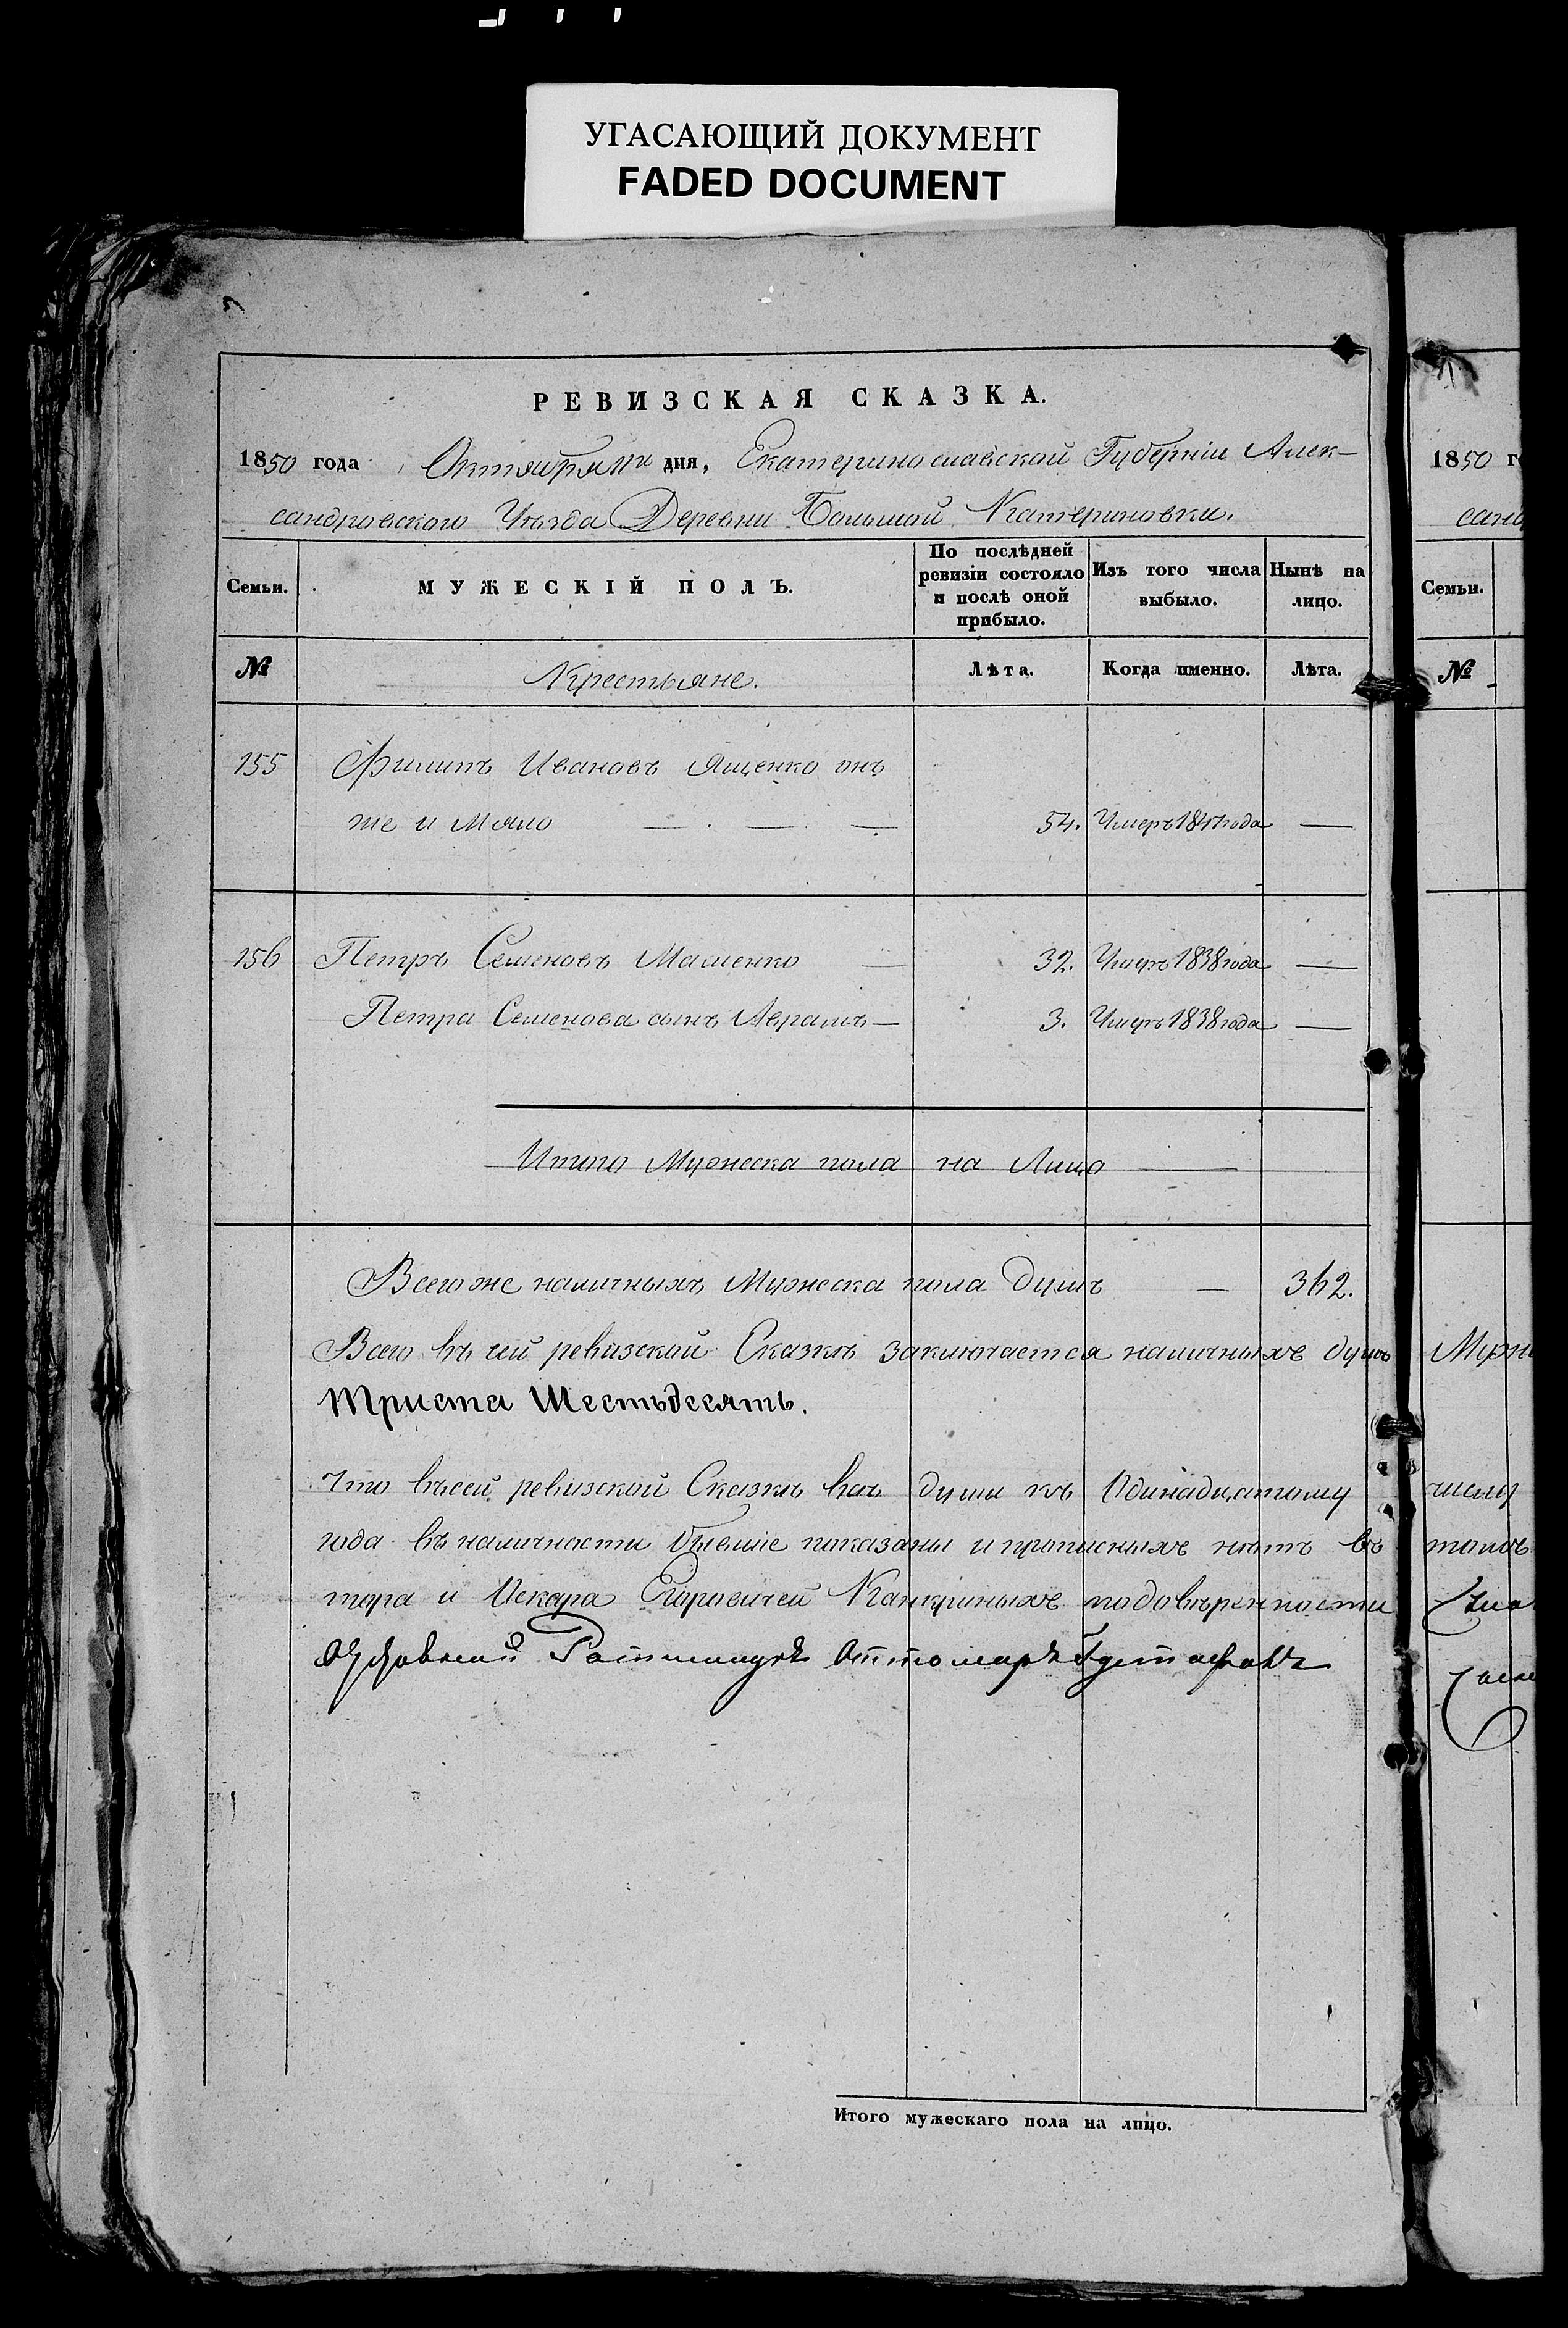 УГАСАЮЩИЙ ДОКУМЕНТ
FADED DOCUMENT
РЕВИЗСКАЯ СКАЗКА.
1850 года Октября 11го дня, Екатеринославской Губерніи Алек-
сандровскаго Уѣзда Деревни Большой Катериновки.
Семьи. МУЖЕСКІЙ ПОЛЪ. По послѣдней ревизіи состояло и послѣ оной прибыло. Изъ того числа выбыло. Нынѣ на лицо.
№ Крестьяне. Лѣта. Когда именно. Лѣта.
155 Филипъ Ивановъ Ященко онъ
же и Мяло — — — 54. Умеръ 1841 года —
156 Петръ Семеновъ Мащенко — 32. Умеръ 1838 года —
Петра Семенова сынъ Аврамъ — 3. Умеръ 1838 года —
Итого Мужеска пола на Лицо —
Всего же наличныхъ Мужеска пола душъ — 362.
Всего въ сей ревизской Сказкѣ заключается наличныхъ душъ
Триста Шестьдесятъ.
Что въ сей ревизской Сказкѣ всѣ души къ Одинадцатому
года въ наличности бывшие показаны и прописныхъ нѣтъ въ
тора и Оскара Егоровичей Канкриныхъ по довѣренности
Оттомаръ Густафовъ
1850 го
санд
Семьи.
№
Мужес
числу
томъ
Итого мужескаго пола на лицо.